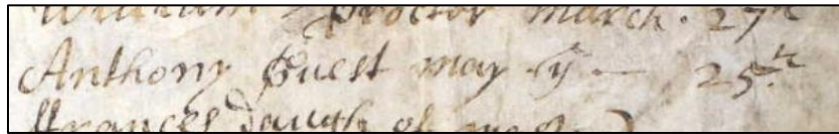 William Proctor march. 27th
Anthony Guest may ye — 25.th
ffrances daugh of